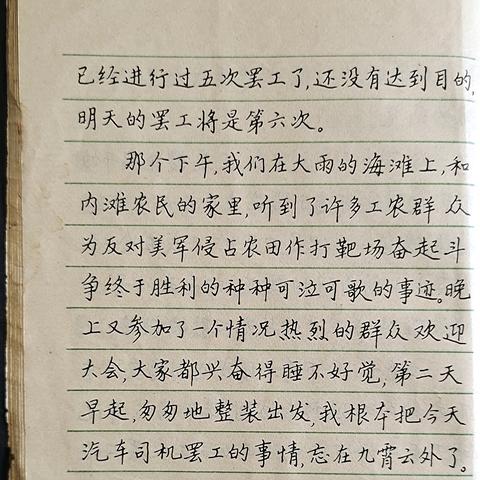 已经进行过五次罢工了,还没有达到目的,
明天的罢工将是第六次。
那个下午,我们在大雨的海滩上,和
内滩农民的家里,听到了许多工农群众
为反对美军侵占农田作打靶场奋起斗
争终于胜利的种种可泣可歌的事迹。晚
上又参加了一个情况热烈的群众欢迎
大会,大家都兴奋得睡不好觉,第二天
早起,匆匆地整装出发,我根本把今天
汽车司机罢工的事情,忘在九霄云外了。